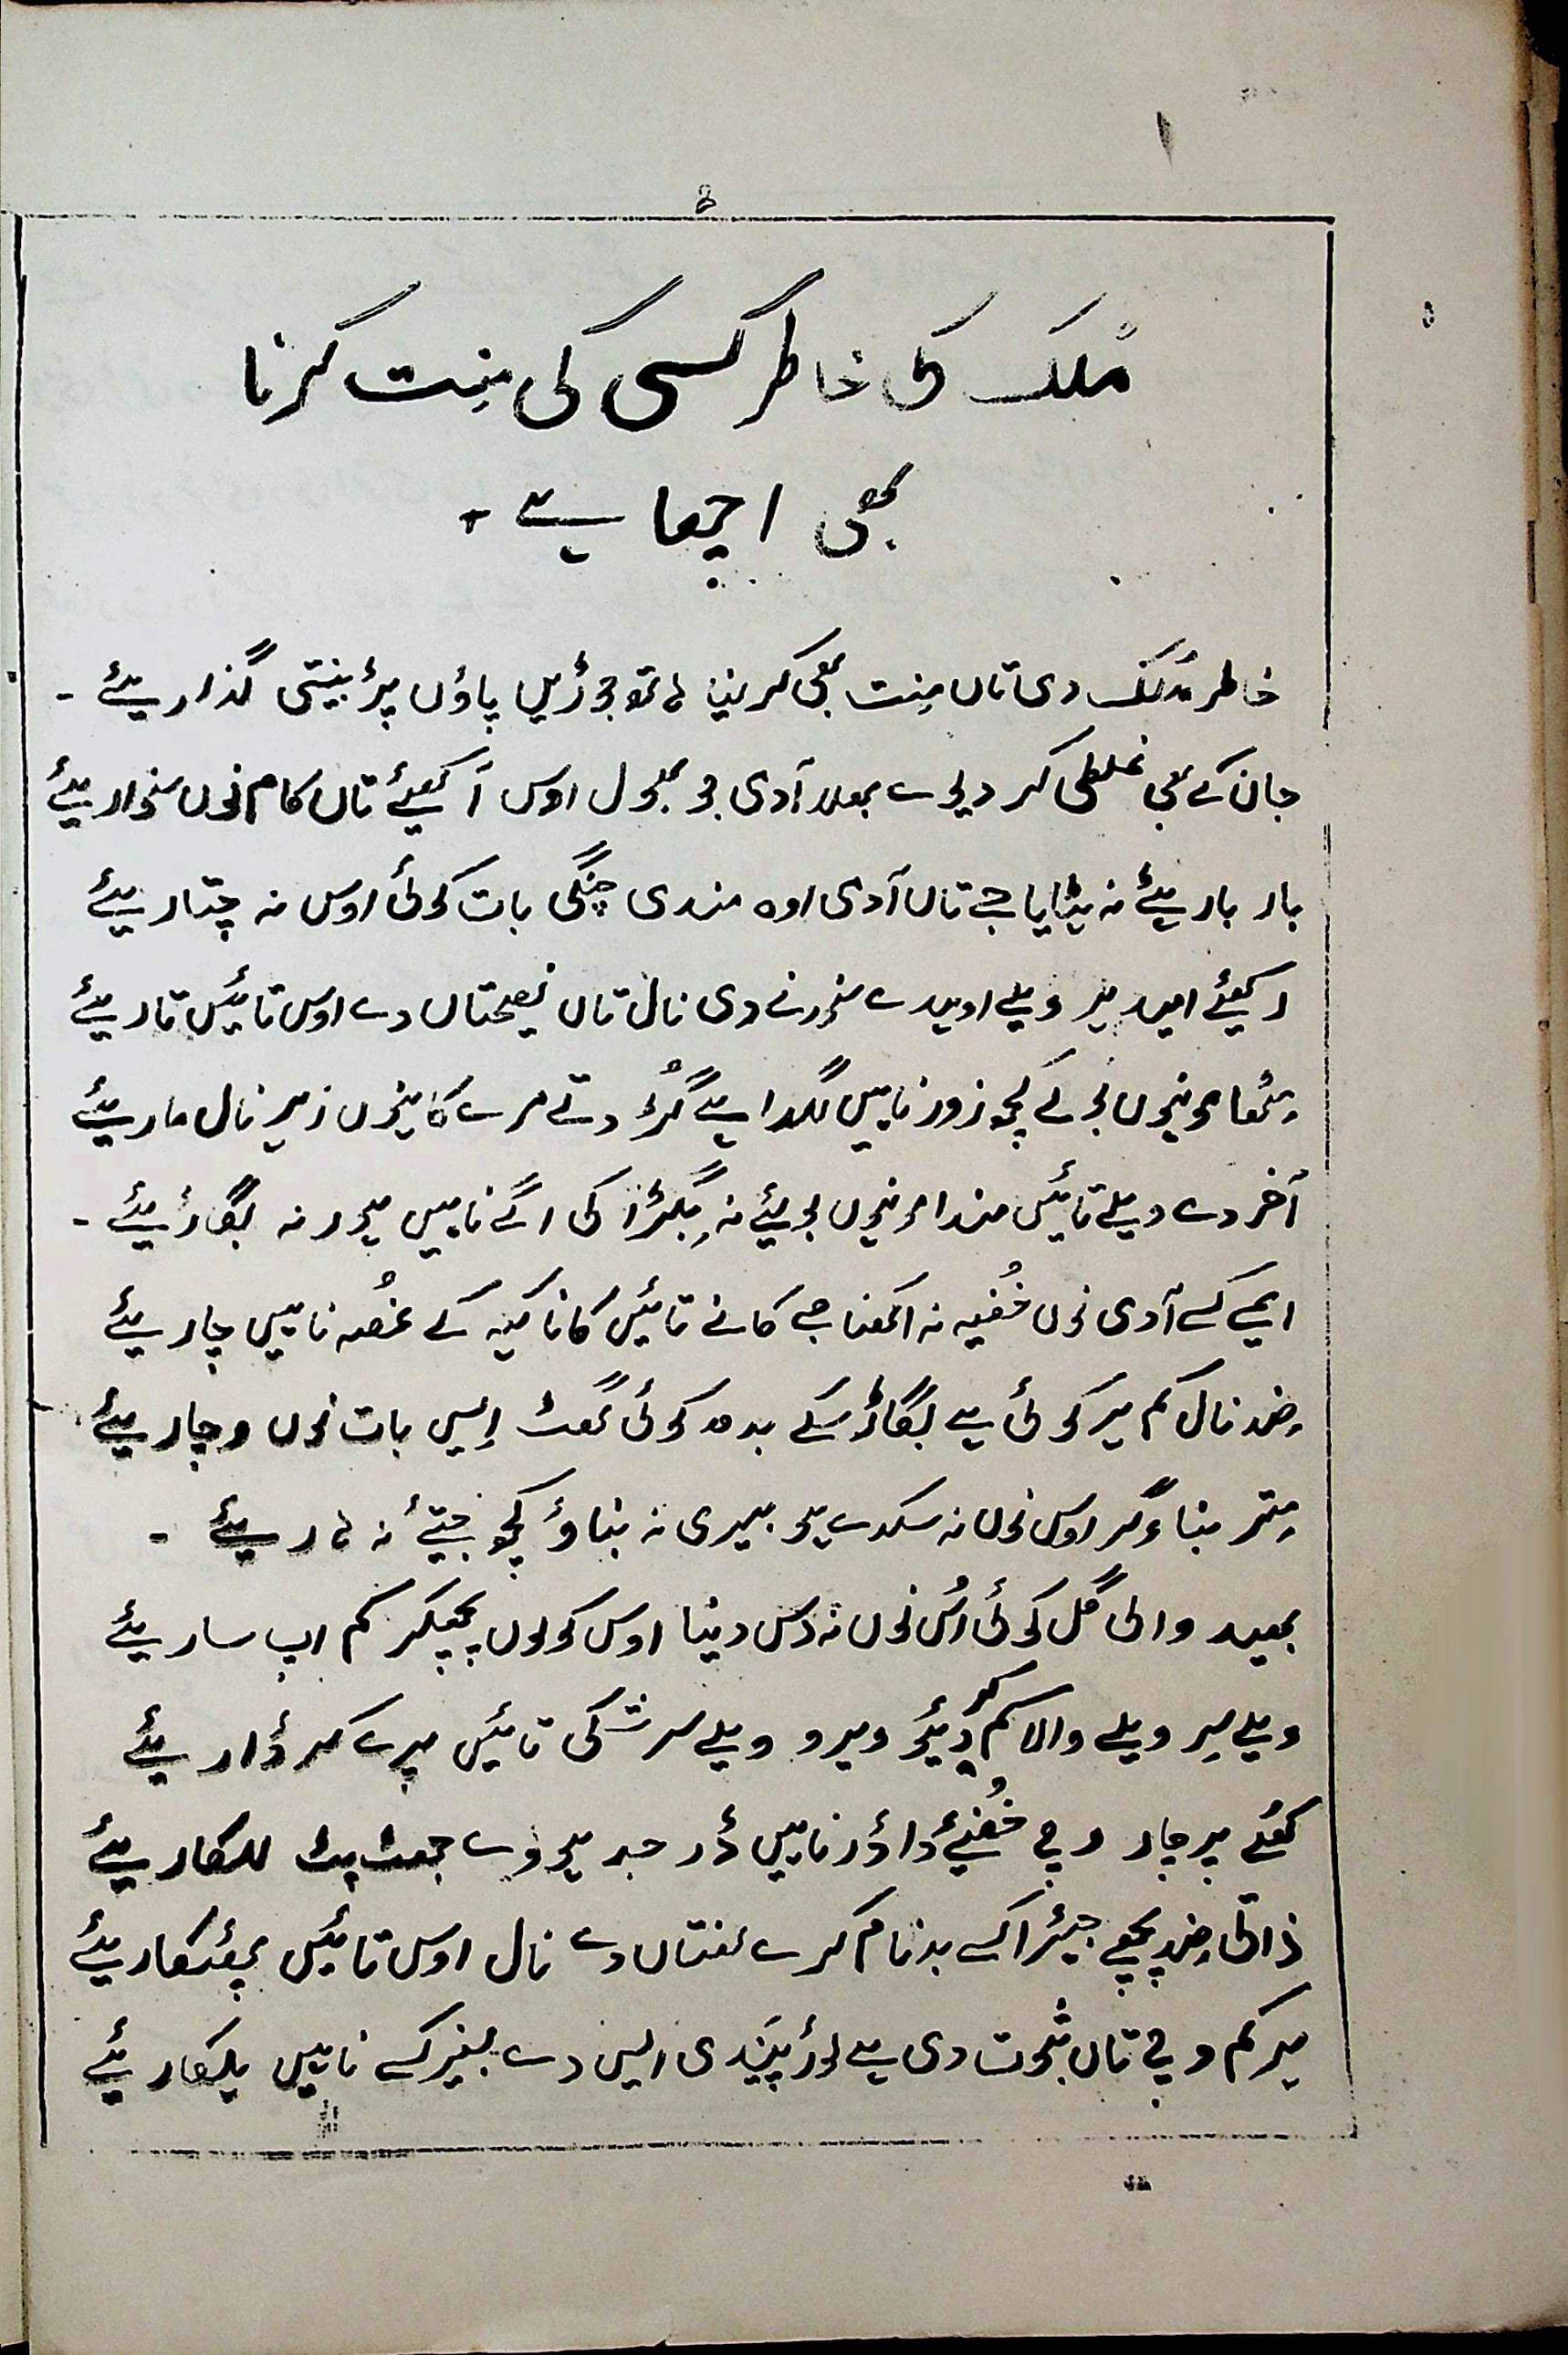 مُلک کی خاطر کسی کی مِنت کرنا
بھی اچھا ہے۔
خاطر مُلک دی تاں مِنت بھی کرنی ہاتھ جوڑیں پاؤں پڑ بینتی گذاریئے۔
جان کے بھی غلطی کر دیوے بھلا آدمی جو بھول اوس آکھیئے تاں کام نوں سنواریئے
بار بار ہئے نہ ہٹایا جے تاں آدمی اوہ مندی چنگی بات کوئی اوس نہ چتاریئے
رکھیئے امید ہر ویلے اوہدے سنورنے دی نال تاں نصیحتاں دے اوس تائیں تاریئے
مِٹھا مونہوں بول کے کچھ زور ناہیں لگدا ہے گُڑ دتے مرے کاہنوں زہر نال ماریئے
آخر دے ویلے تائیں مندا مونہوں بولیئے نہ بِگڑا کی اگے ناہیں ہور نہ بگاڑیئے۔
ایہے کسے آدمی نوں خُفیہ نہ اکھنا جے کانے تائیں کانا کہہ کے غُصہ ناہیں چاڑیئے
ضِد نال کم ہر کوئی ہے بگاڑ سکے بدھ کوئی گھٹ اِسی بات نوں وچاریئے
مِتر بنا گر اوس نوں نہ سکدے ہو بیری نہ بناؤ کچھ جتیے نہ ہاریئے۔
بھید والی گل کوئی اُس نوں نہ دس دینا اوس کولوں چھپکر کم اب ساریئے
ویلے سِر ویلے والا کم کر دیئو ویرو ویلے سر شکی تائیں پرے کر ڈاریئے
کھُلے پرچار وچ خُفیئے دا ڈر ناہیں ڈر جد ہووے جھٹ پٹ للکاریئے
ذاتی ضِد پچھے جیہڑا کسے بدنام کرے لعنتاں دے نال اوس تائیں پھٹکاریئے
ہر کم وچ تاں ثبُوت دی ہے لوڑ پیندی ایس دے بغیر کسے ناہیں پکاریئے